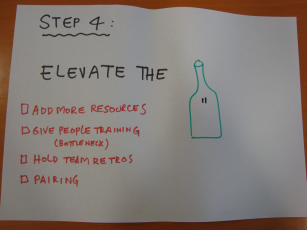 STEP 4:
ELEVATE THE
ADD MORE RESOURCES
GIVE PEOPLE TRAINING
(BOTTLENECK)
HOLD TEAM RETROS
PAIRING